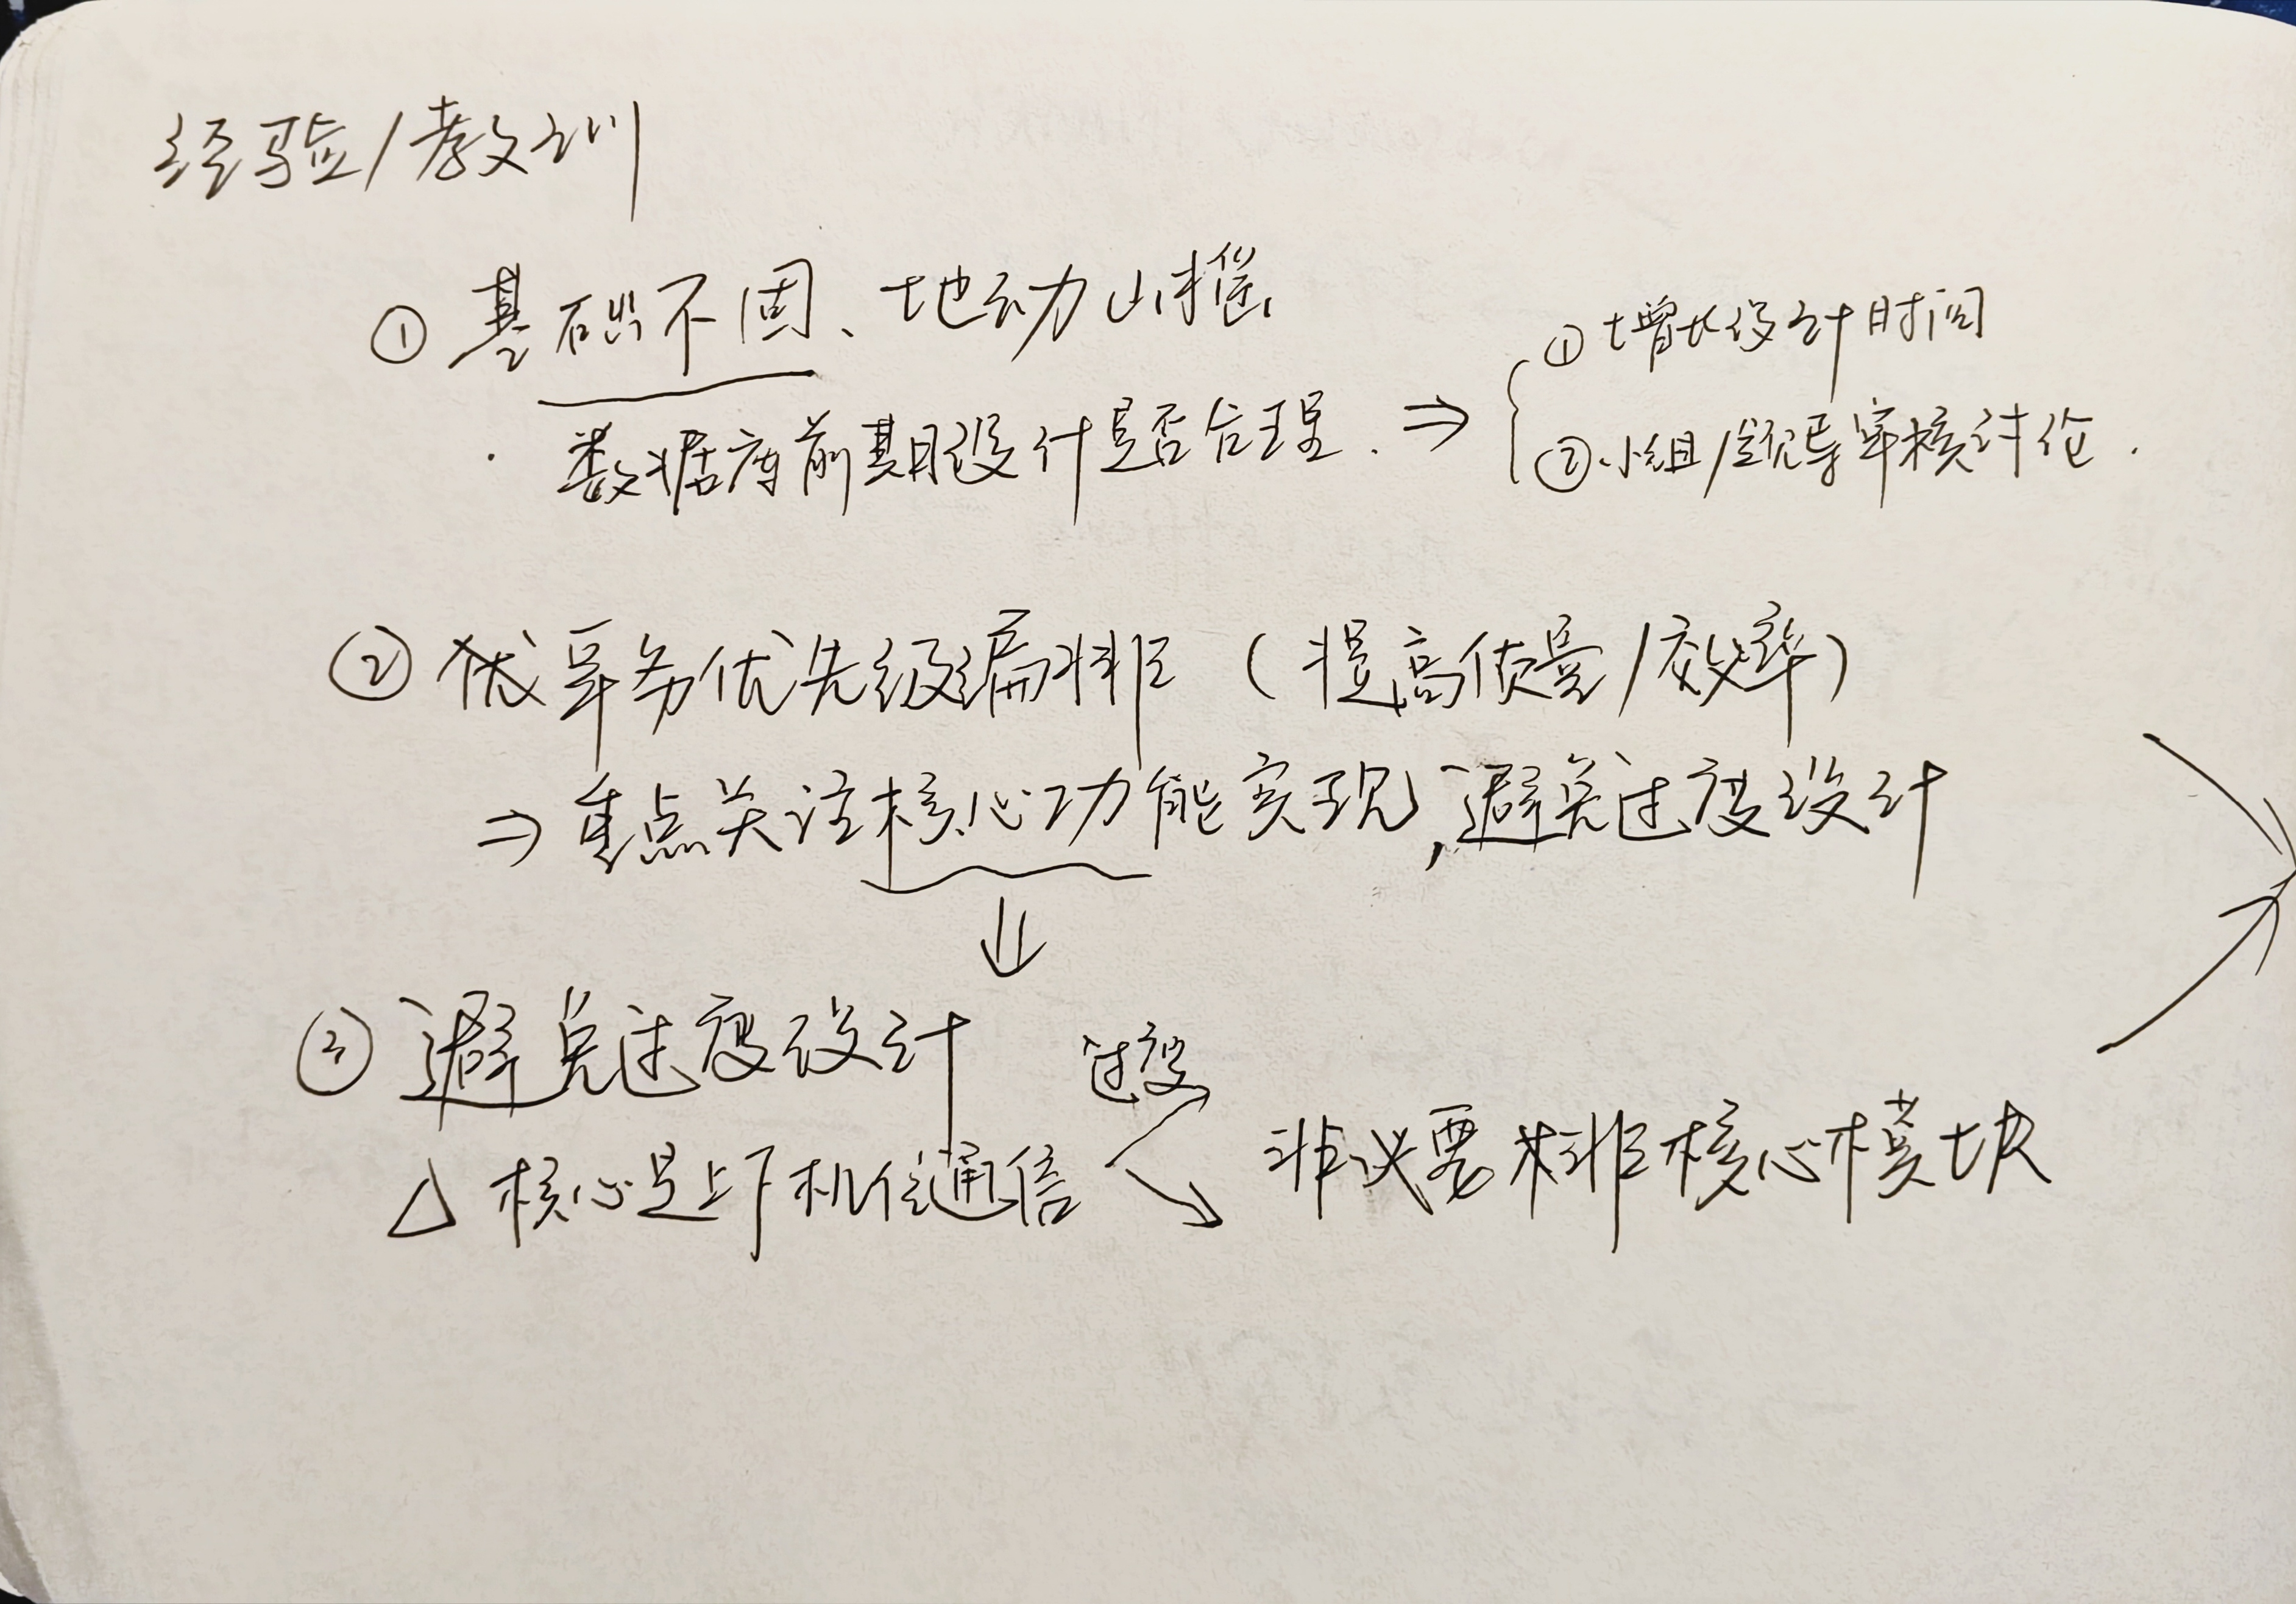 经验/教训
① 基础不固、地动山摇
数据库前期设计是否合理. ⇒
① 增长设计时间
② 小组/领导审核讨论.
② 做事务优先级编排 (提高质量/效率)
⇒ 重点关注核心功能实现,避免过度设计
③ 避免过度设计
过度
△ 核心是上下机位通信
非必要 非核心模块